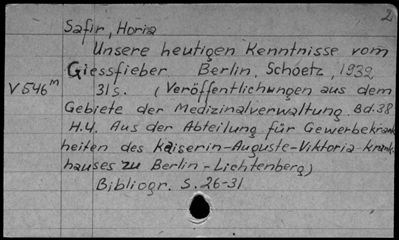 2
Safir, Horia
Unsere heutigen Kenntnisse vom
Giessfieber Berlin, Schoetz, 1932,
V546m 31s. (Veröffentlichungen aus dem
Gebiete der Medizinalverwaltung. Bd.38
H.4. Aus der Abteilung für Gewerbekrank
heiten des Kaiserin-Auguste-Viktoria-Krank
hauses zu Berlin-Lichtenberg)
Bibliogr. S.26-31